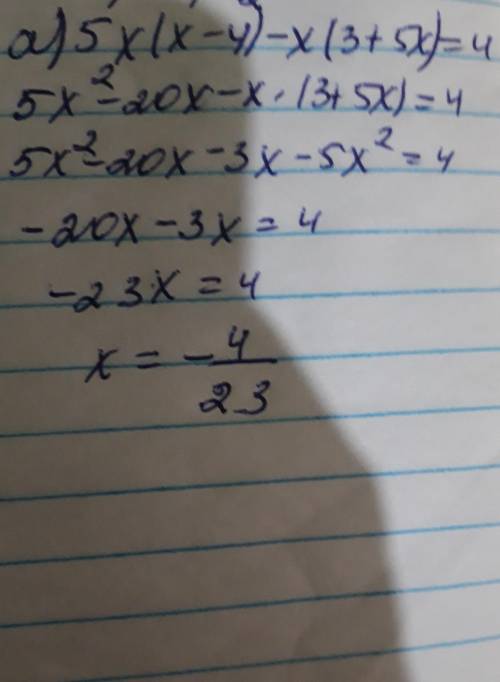 a) 5x(x-4)-x(3+5x)=4
5x²-20x-x·(3+5x)=4
5x²-20x-3x-5x²=4
-20x-3x=4
-23x=4
x=-4/23